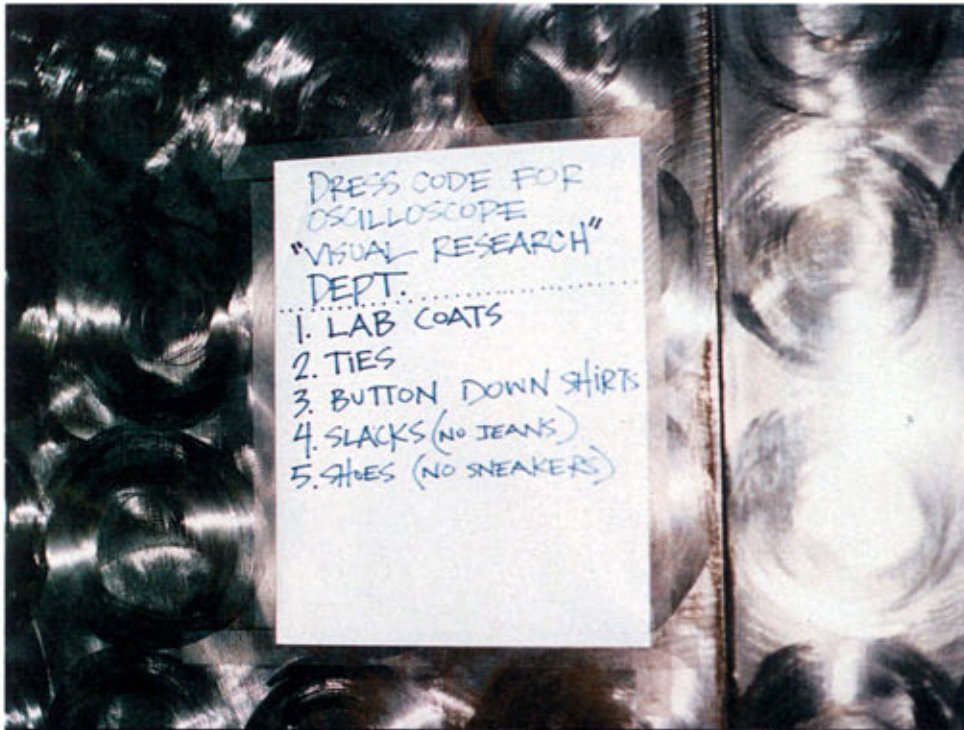 DRESS CODE FOR
OSCILLOSCOPE
"VISUAL RESEARCH"
DEPT.
1. LAB COATS
2. TIES
3. BUTTON DOWN SHIRTS
4. SLACKS (NO JEANS)
5. SHOES (NO SNEAKERS)